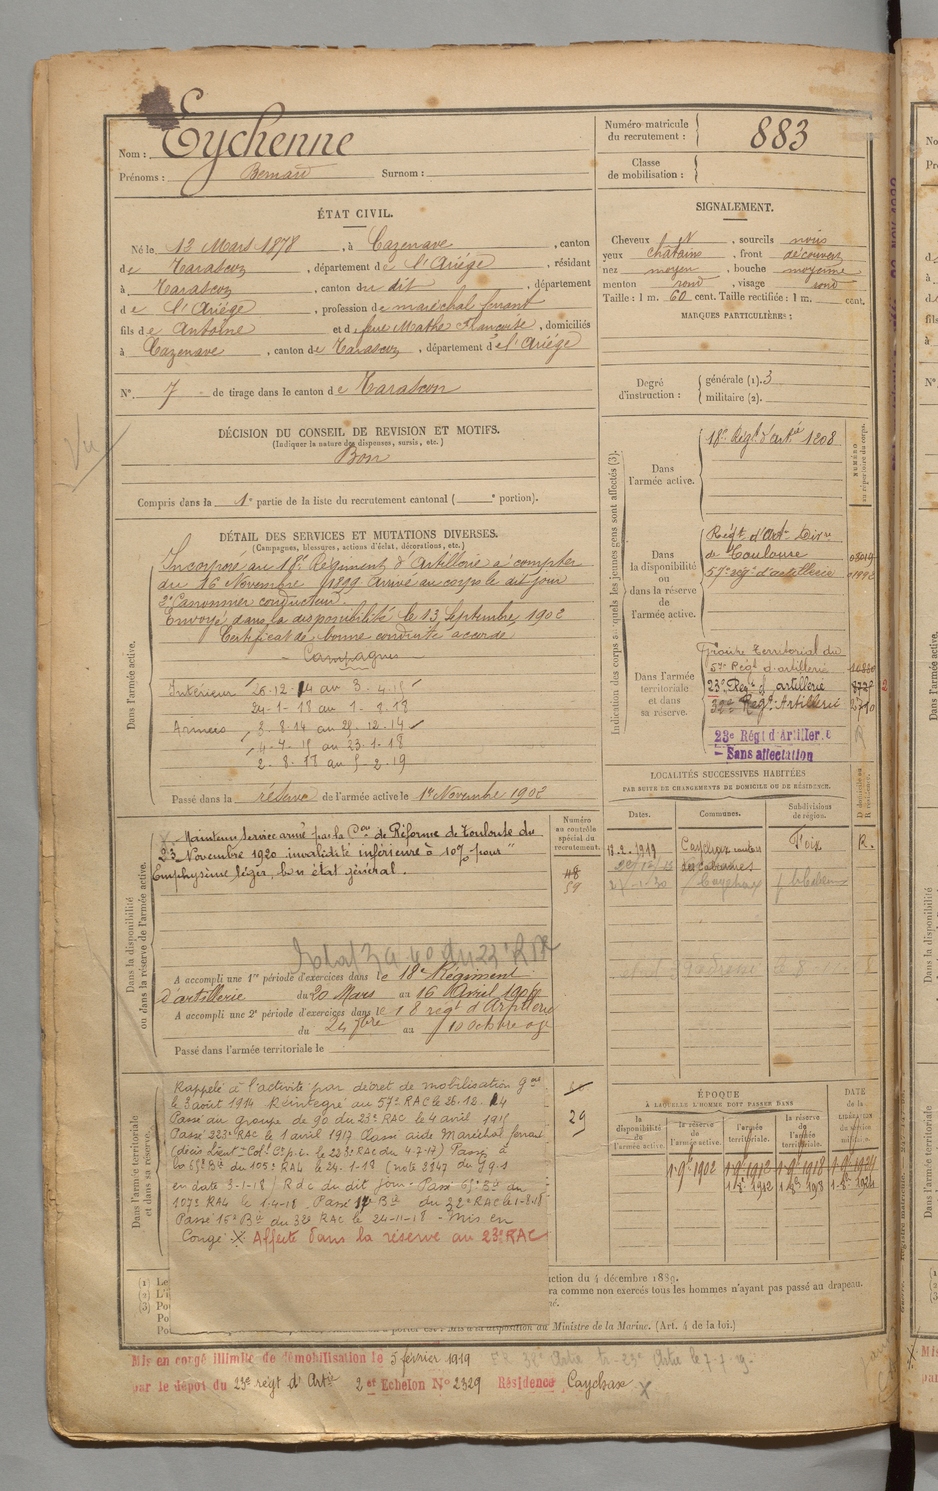 Nom : Eychenne
Prénoms : Bernard Surnom :
Numéro matricule du recrutement : 883
Classe de mobilisation :
ÉTAT CIVIL.
Né le 12 Mars 1878, à Cazenave, canton
de Tarascon, département de l'Ariége, résidant
à Tarascon, canton du dit, département
de l'Ariége, profession de maréchal ferrant
fils de Antoine et de feue Mathe Francoise, domiciliés
à Cazenave, canton de Tarascon, département de l'Ariége
N° 7 de tirage dans le canton de Tarascon
SIGNALEMENT.
Cheveux , sourcils noirs
yeux chatains, front découvert
nez moyen, bouche moyenne
menton rond, visage rond
Taille : 1 m. 60 cent. Taille rectifiée : 1 m. cent.
MARQUES PARTICULIÈRES :
Degré d'instruction : générale (1). 3
militaire (2).
Vu
DÉCISION DU CONSEIL DE REVISION ET MOTIFS.
(Indiquer la nature des dispenses, sursis, etc.)
Bon
Compris dans la 1e partie de la liste du recrutement cantonal ( e portion).
DÉTAIL DES SERVICES ET MUTATIONS DIVERSES.
(Campagnes, blessures, actions d'éclat, décorations, etc.)
Dans l'armée active.
Incorporé au 18e Régiment d'Artillerie à compter
du 16 Novembre 1899 Arrivé au corps le dit jour
2e Canonnier conducteur.
Envoyé dans la disponibilité le 13 Septembre 1902
Certificat de bonne conduite accordé
Campagnes
Intérieur 26-12-14 au 3-4-15
24-1-18 au 1-8-18
Armées 3-8-14 au 25-12-14
4-4-15 au 23-1-18
au 5-2-19
Passé dans la réserve de l'armée active le 1er Novembre 1902
Indication des corps auxquels les jeunes gens sont affectés (3).
Dans l'armée active.
18e Régt d'artie 1208
NUMÉRO au répertoire du corps.
Dans la disponibilité ou dans la réserve de l'armée active.
Régt d'Art
de Toulouse
57e régt d'artillerie
Dans l'armée territoriale et dans sa réserve.
Groupe Territorial du
57e Régt d'artillerie
23e Régt d'artillerie
32e Régt Artillerie
23e Régt d'Artillerie
Sans affectation
LOCALITÉS SUCCESSIVES HABITÉES
PAR SUITE DE CHANGEMENTS DE DOMICILE OU DE RÉSIDENCE.
Dates. Communes. Subdivisions de région. D domicile ou R résidence.
18-2-1919 Caychax canton des Cabannes Foix R.
Caychax
Dans la disponibilité ou dans la réserve de l'armée active.
Numéro au contrôle spécial du recrutement.
X Maintenu service armé par la Con de Réforme de Toulouse du
23 Novembre 1920 invalidité inférieure à 10% pour
Emphysème léger, bon état général.
48
59
A accompli une 1re période d'exercices dans le 18e Régiment
d'artillerie du 20 Mars au 16 Avril
A accompli une 2e période d'exercices dans le 18 régt d'Artillerie
du 24 7bre au 10 Octobre
Passé dans l'armée territoriale le
Dans l'armée territoriale et dans sa réserve.
Rappelé à l'activité par décret de mobilisation gale
le 3 août 1914 Réintegré au 57e RAC le 26.12.14
Passé au groupe de 90 du 23e RAC le 4 avril 1915
Passé 223e RAC le 1 avril 1917 Classé aide Maréchal ferrant
(décis Lieut-Colel Ct p.i. le 223e RAC du 4-7-17) Passé à
la 65e Bie du 105e RAL le 24-1-18 (note 3847 du
en date 3-1-18) Rdc du dit jour - Passé 65e Bie au
107e RAL le 1-4-18, Passé Bie du 32e RAC le 1-8-18
Passé 15e Bie du 32e RAC le 24-11-18 - Mis en
Congé X Affecté dans la réserve au 23e RAC
29
ÉPOQUE
À LAQUELLE L'HOMME DOIT PASSER DANS
la disponibilité de l'armée active. la réserve de l'armée active. l'armée territoriale. la réserve de l'armée territoriale.
DATE de la LIBÉRATION du service militaire.
1-9bre 1902 1-9bre 1912 1-9bre 1918 1-9bre 1924
(1) Le
(2) L'i
(3) Po
Po
Po
ction du 4 décembre 1889.
ra comme non exercés tous les hommes n'ayant pas passé au drapeau.
à la disposition du Ministre de la Marine. (Art. 4 de la loi.)
Mis en congé illimité de démobilisation le 5 février 1919
par le dépot du 23e régt d'Artie 2et Echelon N° 2329 Résidence Caychax X